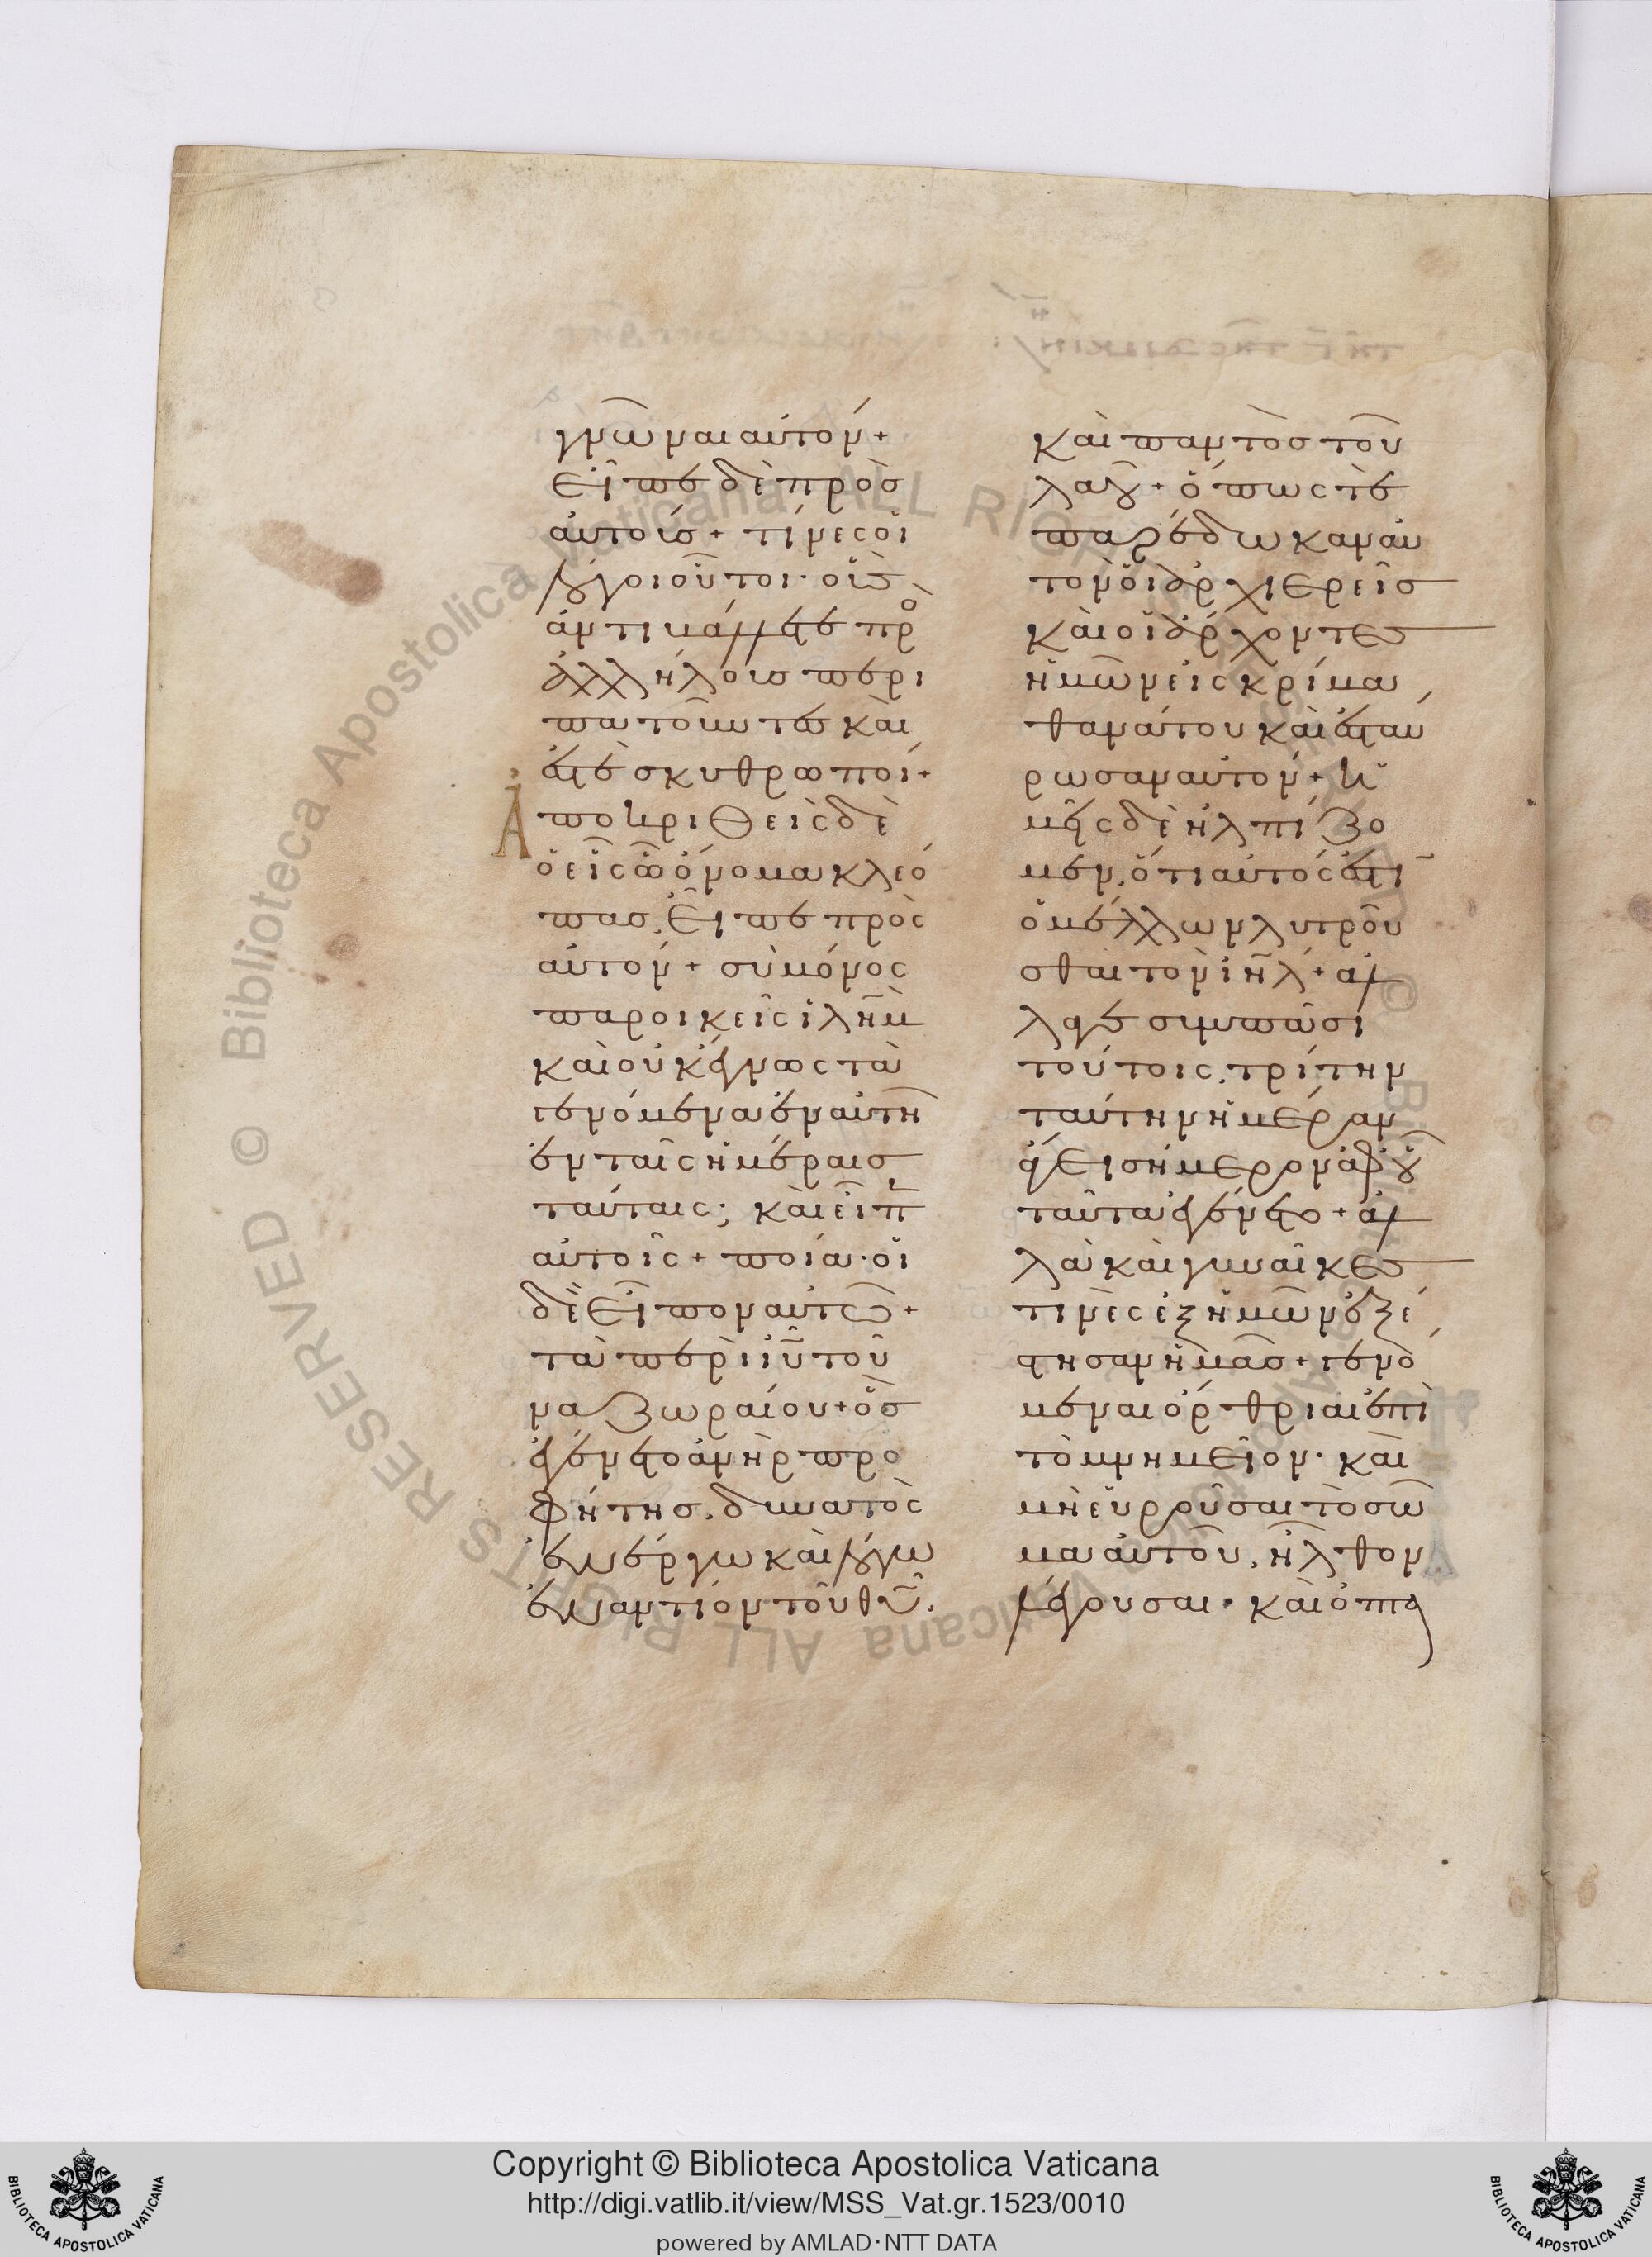 γνῶναι αὐτόν+
εἶπε δὲ πρὸσ
αὐτούσ+ τίνες οἱ
λόγοι οὗτοι· οὓς
ἀντιβάλλετε πρ̊
ἀλλήλουσ περι
πατοῦντες καὶ
ἐστὲ σκυθρωποί+
Ἀποκριθεὶς δὲ
ὁ εἷς ὧ ὄνομα κλεό
πασ. εἶπε πρὸς
αὐτόν+ σὺ μόνος
παροικεῖς ἰλῆμ
καὶ οὐκ ἔγνως τὰ
γενόμενα ἐν αὐτῆ
ἐν ταῖς ἡμέραισ
ταύταις; καὶ εἶπ
αὐτοῖς+ ποῖα· οἱ
δὲ εἶπον αὐτῶ+
τὰ περὶ ἰῦ τοῦ
ναζωραίου+ ὃσ
ἐγένετο ἀνὴρ προ
φήτησ. δυνατὸς
ἐν ἔργω καὶ λόγω
ἐναντίον τοῦ θῦ.
καὶ παντὸσ τοῦ
λαοῦ+ ὅπως τὲ
παρέδωκαν αὐ
τὸν οἱ ἀρχιερεῖσ
καὶ οἱ ἄρχοντεσ
ἡμῶν εἰς κρίμα
θανάτου καὶ ἐσταύ
ρωσαν αὐτόν+ ἡ
μεῖς δὲ ἠλπίζο
μεν. ὅτι αὐτός ἐστι
ὁ μέλλων λυτροῦ
σθαι τὸν ἰῆλ+ ἀλ
λά γε σὺν πᾶσι
τούτοις. τρίτην
ταύτην ἡμέραν
ἄγει σήμερον ἀφ' οὗ
ταῦτα ἐγένετο+ ἀλ
λὰ καὶ γυναῖκεσ
τινὲς ἐξ ἡμῶν ἐξέ
στησαν ἡμᾶσ+ γενό
μεναι ὄρθριαι ἐπὶ
τὸ μνημεῖον· καὶ
μὴ εὑροῦσαι τὸ σῶ
μα αὐτοῦ. ἦλθον
λέγουσαι· καὶ ὀπτα
Copyright © Biblioteca Apostolica Vaticana
http://digi.vatlib.it/view/MSS_Vat.gr.1523/0010
powered by AMLAD·NTT DATA
BIBLIOTECA APOSTOLICA VATICANA
BIBLIOTECA APOSTOLICA VATICANA
© Biblioteca Apostolica Vaticana ALL RIGHTS RESERVED
© Biblioteca Apostolica Vaticana ALL RIGHTS RESERVED